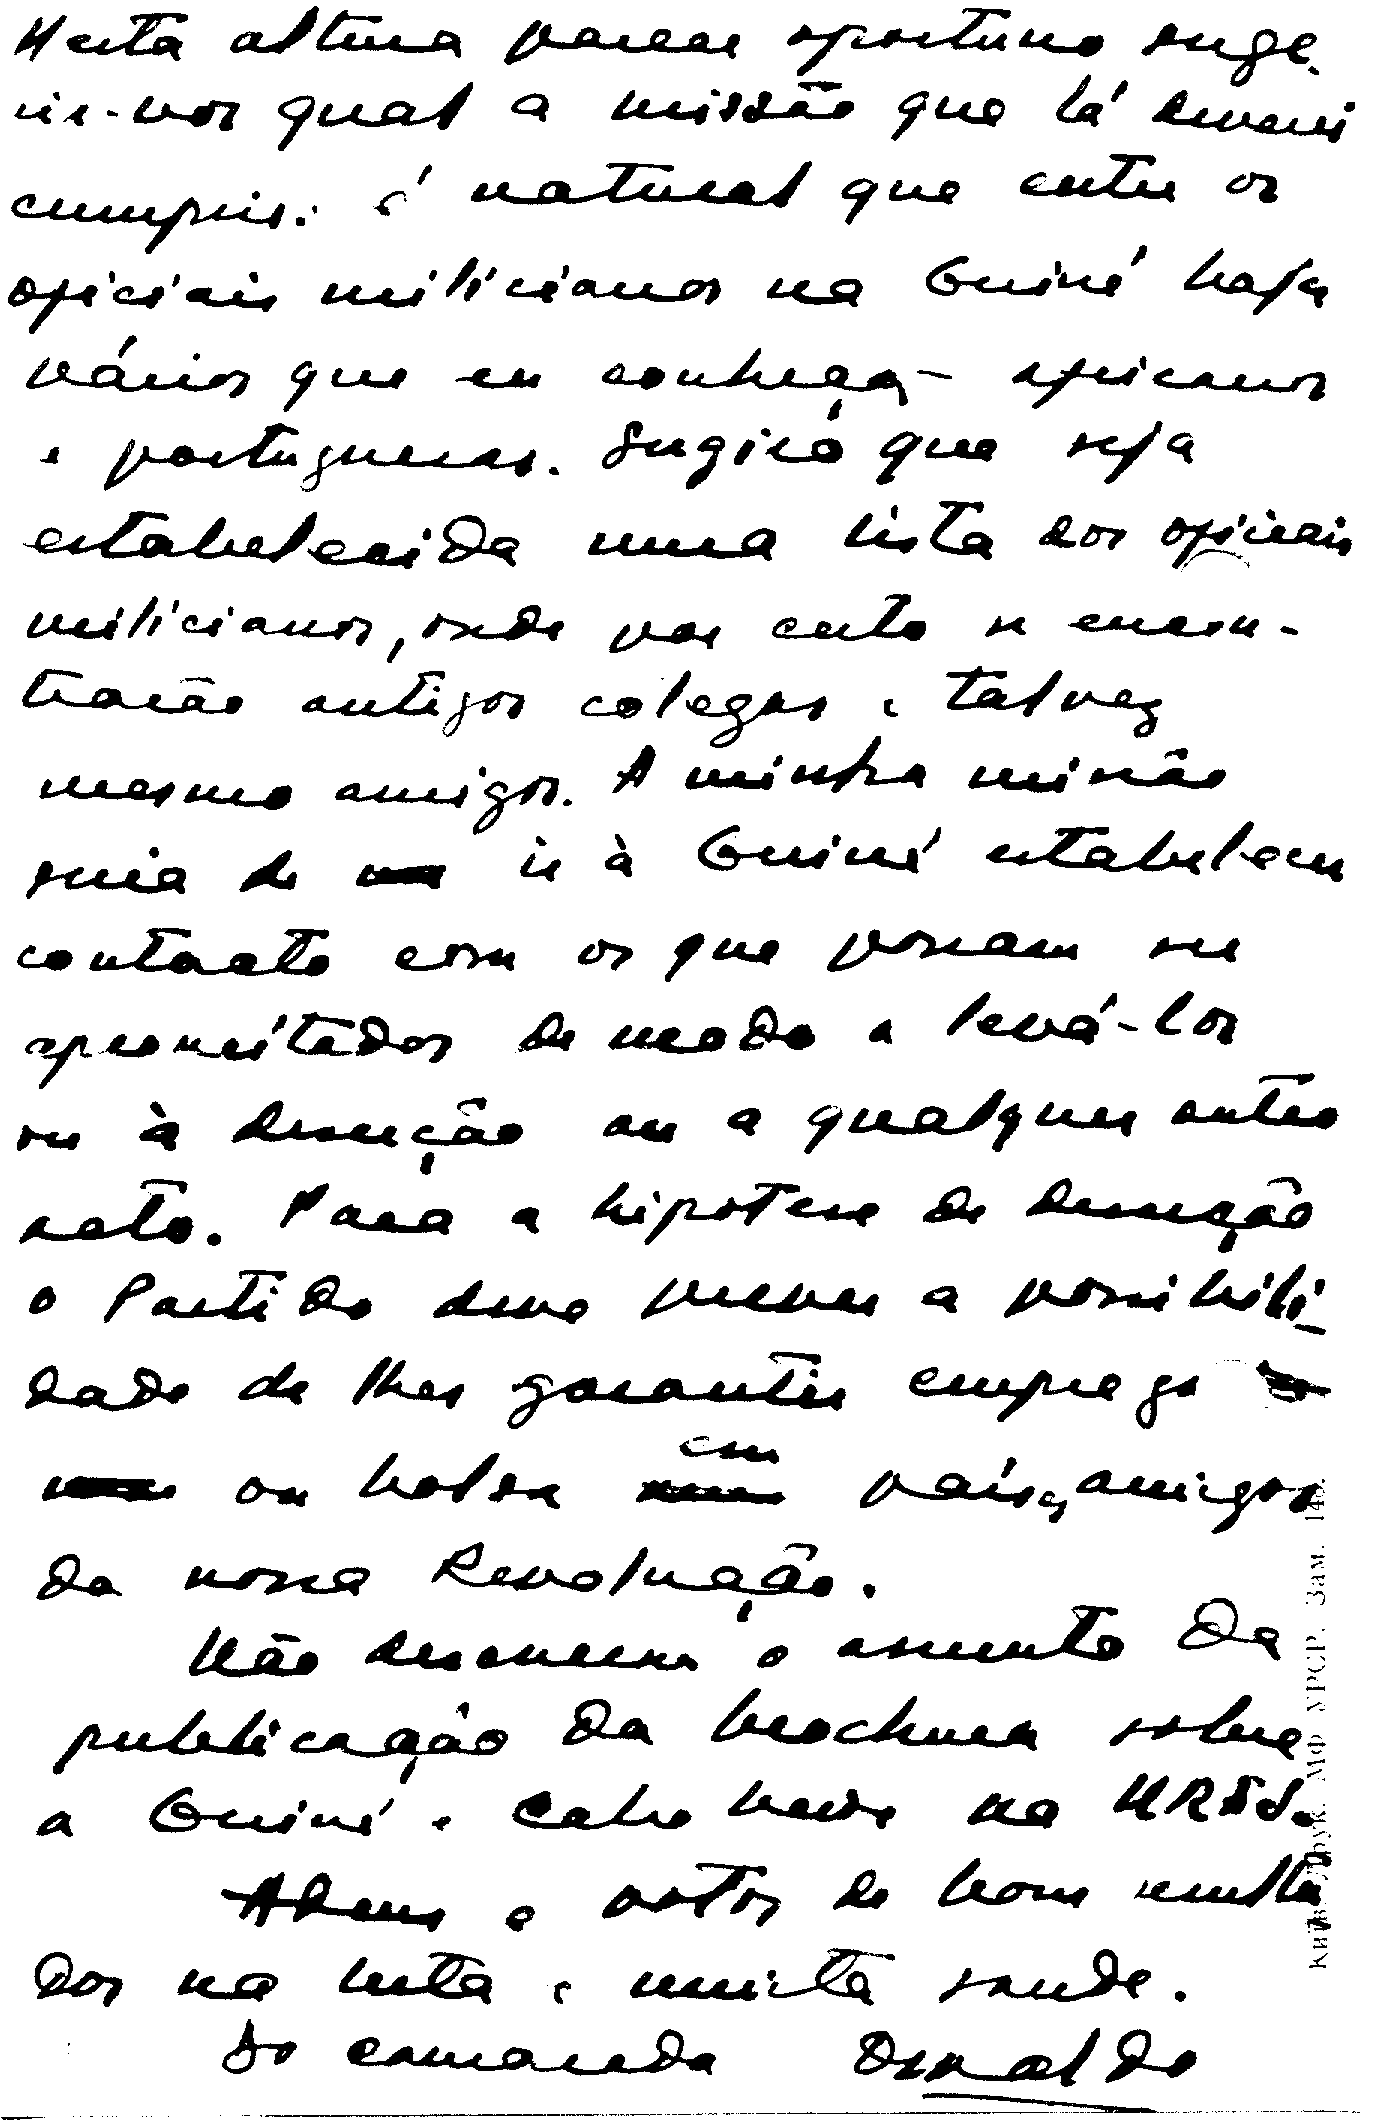 Nesta altura parece oportuno suge-
rir-vos qual a missão que lá deverei
cumprir: é natural que entre os
oficiais milicianos na Guiné haja
vários que eu conheça, - africanos
e portugueses. Sugiro que seja
estabelecida uma lista dos oficiais
milicianos, onde por certo se encon-
trarão antigos colegas e talvez
mesmo amigos. A minha missão
seria de ir à Guiné estabelecer
contacto com os que possam ser
aproveitados de modo a levá-los
ou à deserção ou a qualquer outro
acto. Para a hipotese de deserção
o Partido deve prever a possibili-
dade de lhes garantir emprego
ou bolsa em países amigos
da nossa Revolução.
Não descurem o assunto da
publicação da brochura sobre
a Guiné e Cabo Verde na URSS.
Adeus e votos de bons resulta
dos na luta e muita saude.
Do camarada Osvaldo
Київ. Друк. МФ УРСР. Зам. 145.